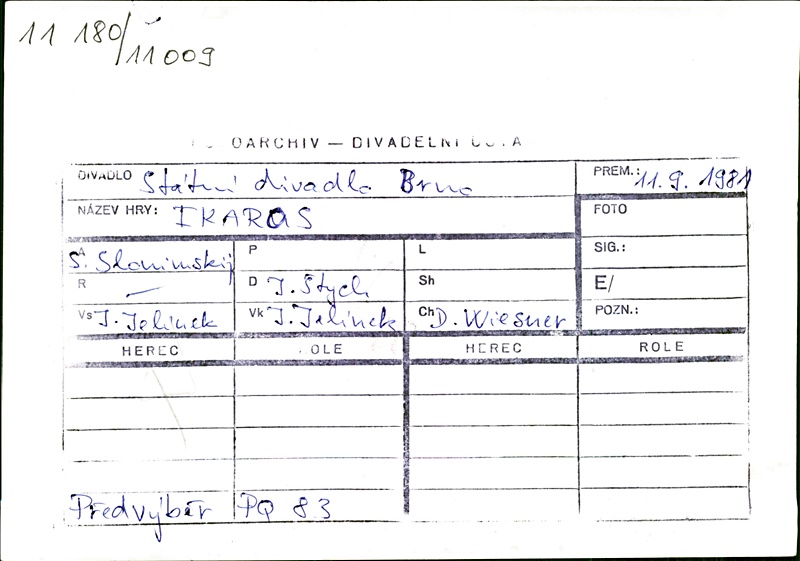 11 180/11009
OARCHIV — DIVADELNÍ
DIVADLO Státní divadlo Brno PREM.: 11.9.1981
NÁZEV HRY: IKAROS FOTO
A S. Slonimskij P L SIG.:
R — D J. Štych Sh E/
Vs J. Jelínek Vk J. Jelínek Ch D. Wiesner POZN.:
HEREC OLE HEREC ROLE
Předvýběr PQ 83